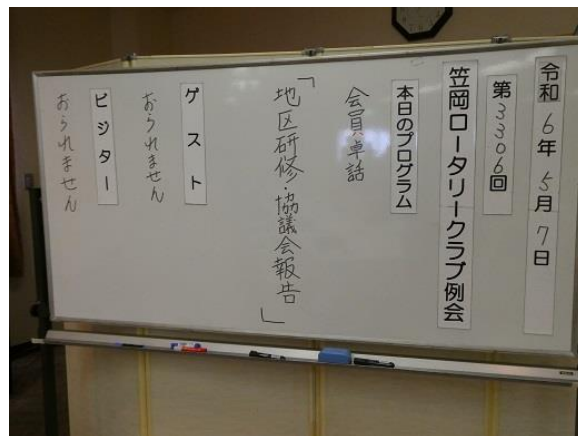 令和6年5月7日
第3306回
笠岡ロータリークラブ例会
本日のプログラム
会員卓話
「地区研修・協議会報告」
ゲスト
おられません
ビジター
おられません